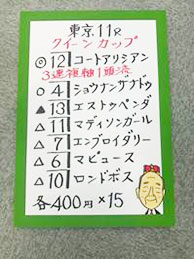 東京11R
クイーンカップ
◎12 コートアリシアン
3連複軸1頭流
○4 ショウナンザナドゥ
▲13 エストゥペンダ
△11 マディソンガール
△7 エンブロイダリー
△6 マピュース
△10 ロンドボス
各400円×15